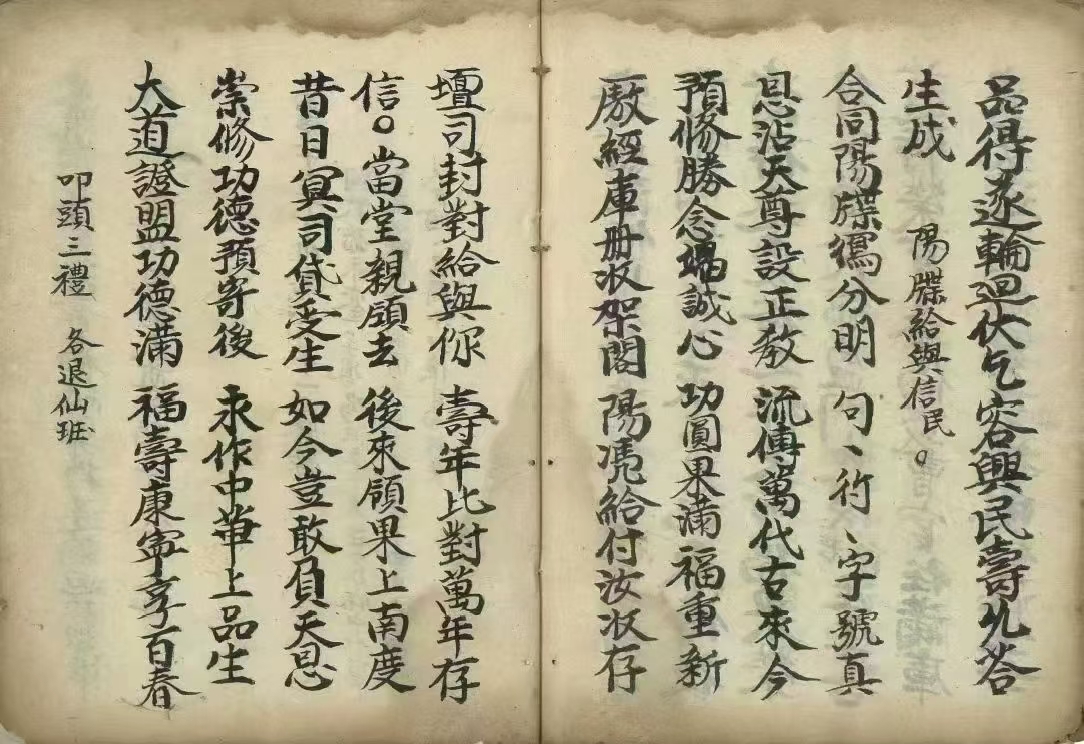 品得逐輪迴伏乞容興民壽允答
生成　陽牒給與信民。
合同陽牒寫分明　句丶行丶字號真
恩沾天尊設正教　流傳萬代古來今
預修勝念端誠心　功圓果滿福重新
一厫經庫册收架閣　陽憑給付汝收存
壇司封對給與你　壽年比對萬年存
信。當堂親領去　後來領果上南度
昔日冥司貸受生　如今豈敢負天恩
崇修功德預寄後　永作中華上品生
大道證盟功德滿　福壽康寧享百春
叩頭三禮　各退仙班